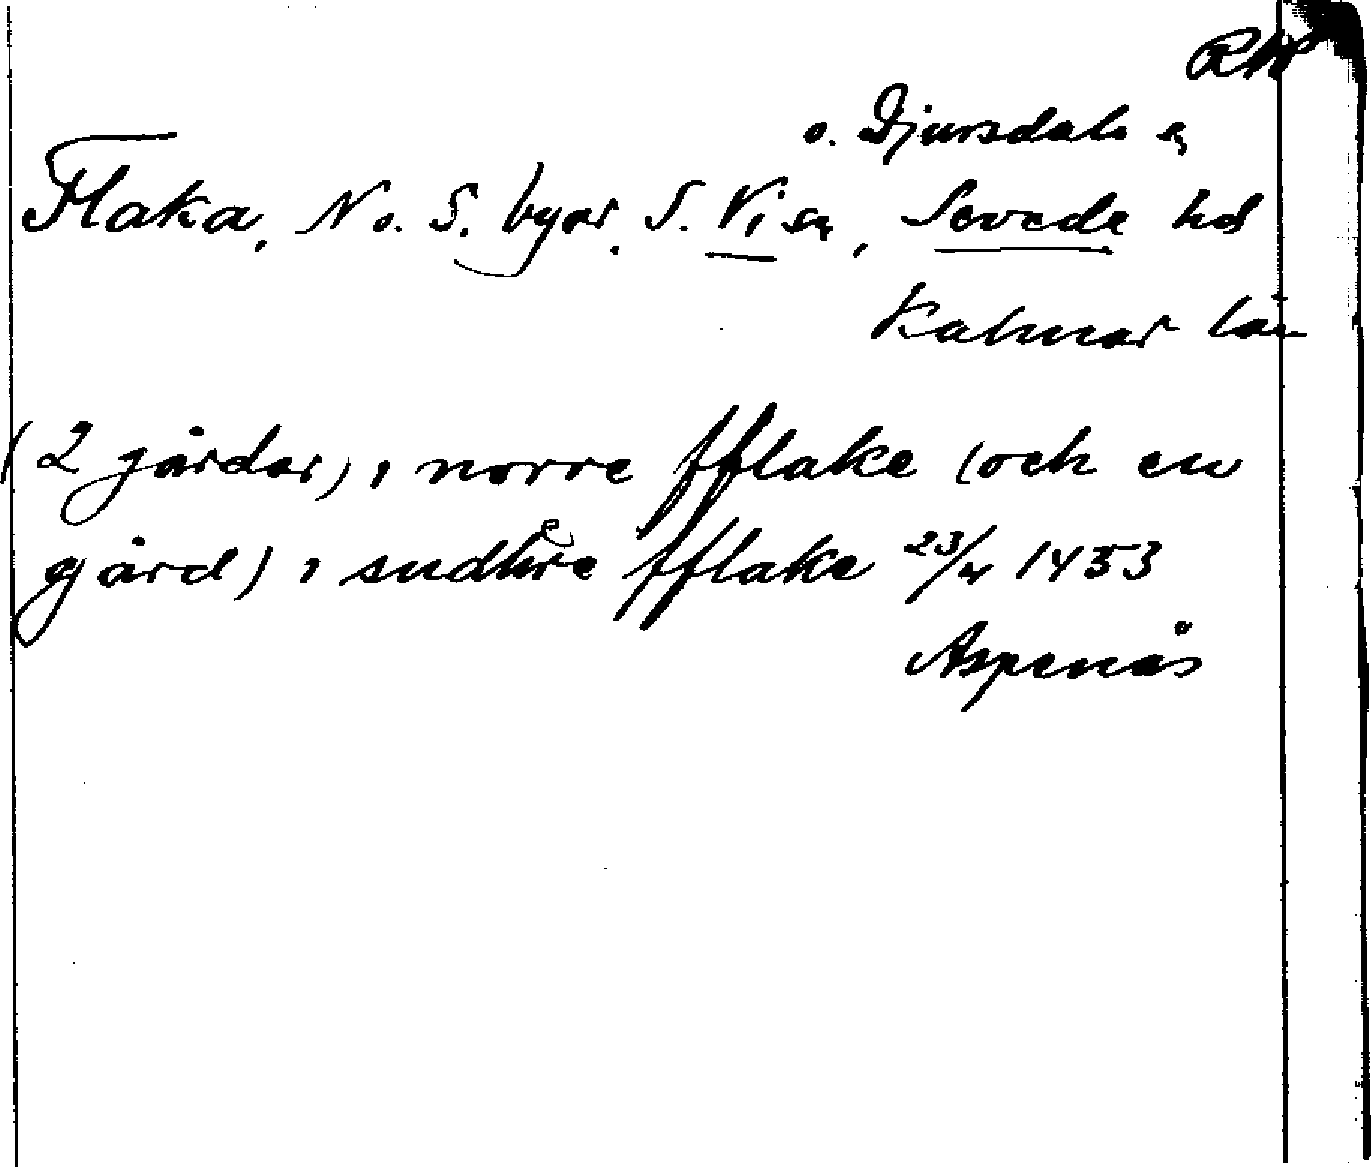 RAP
o. Djursdala sn
Flaka, N o. S. byar, S. Vi sn, Sevede hd
Kalmar län
(2 gårdar) i norre fflake (och en
gård) i sudhre fflake 23/4 1453
Aspenäs